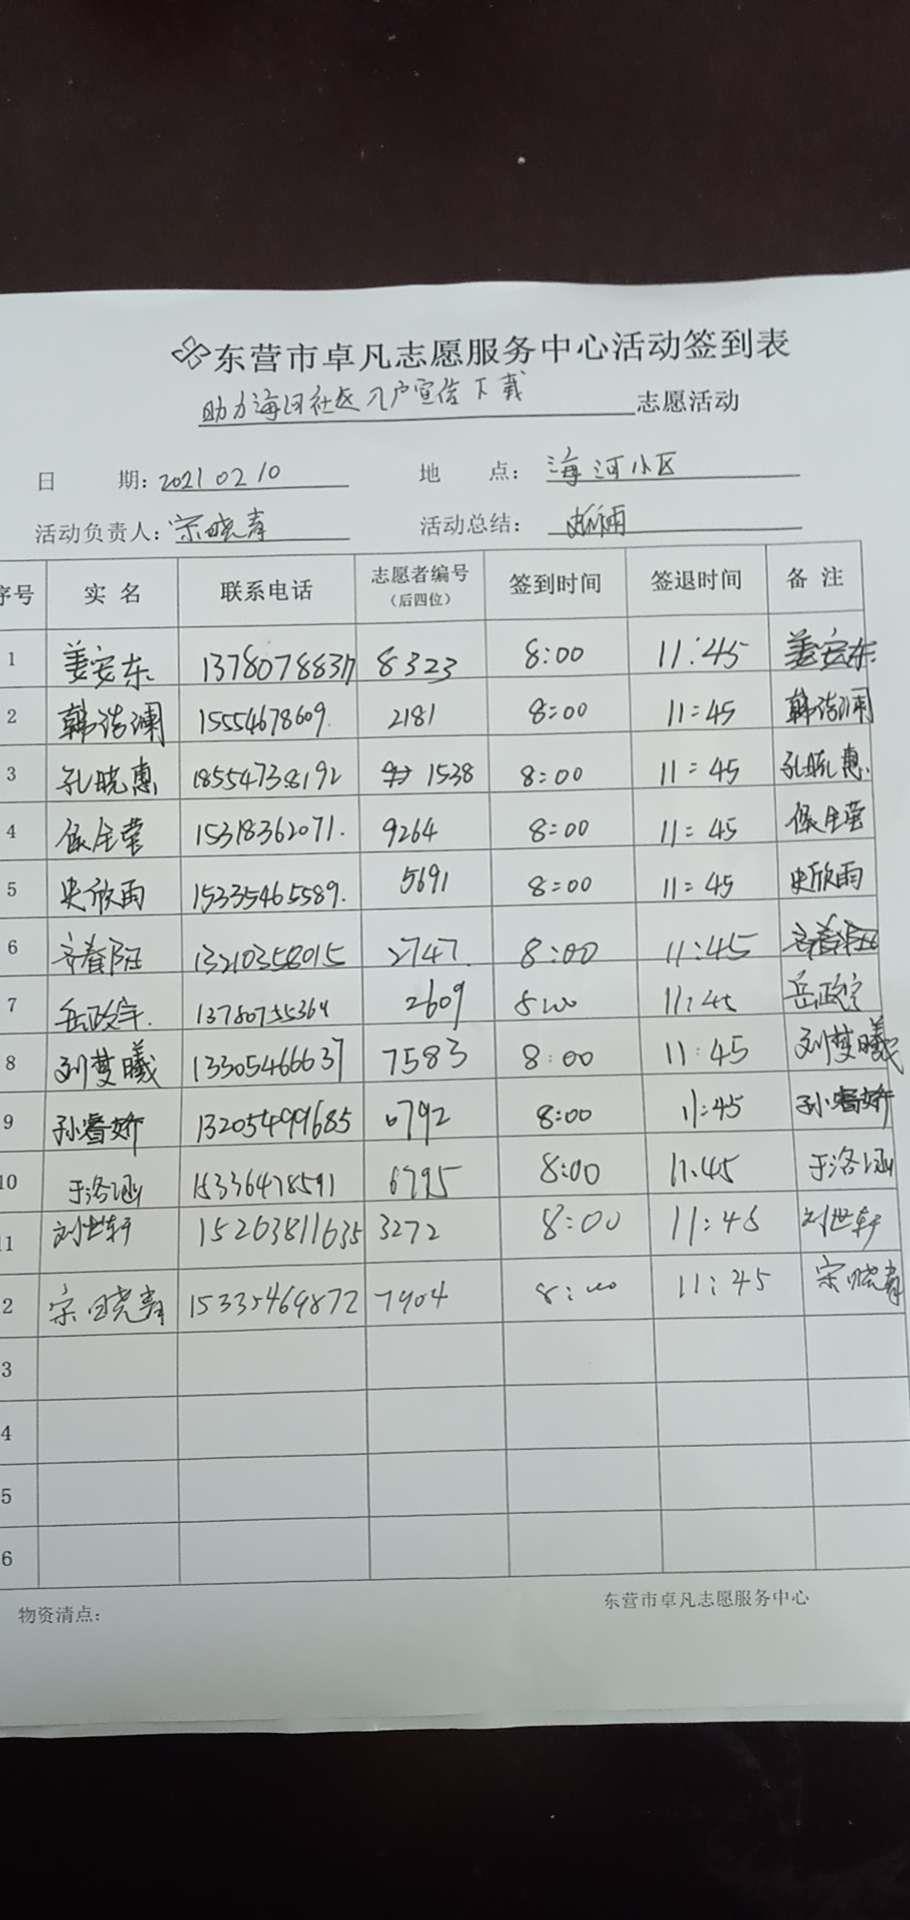 东营市卓凡志愿服务中心活动签到表
助力海河社区入户宣传下载 志愿活动
日 期: 2021 02 10 地 点: 海河小区
活动负责人: 宋晓青 活动总结:
序号 实 名 联系电话 志愿者编号（后四位） 签到时间 签退时间 备 注
1 姜安东 8323 8:00 11:45 姜安东
2 韩浩澜 15554678609 2181 8:00 11:45 韩浩澜
3 孔晓惠 18554738192 1538 8:00 11:45 孔晓惠
4 15318362071. 9264 8:00 11:45
5 史欣雨 15335465589. 5691 8:00 11:45 史欣雨
6 13210358015 2747 8:00 11:45
7 岳政宇. 13780755364 2609 8:00 11:45 岳政宇
8 刘梦曦 13305466637 7583 8:00 11:45 刘梦曦
9 孙睿娇 13205499685 0792 8:00 11:45 孙睿娇
10 于洛涵 15336478591 6795 8:00 11:45 于洛涵
11 刘世轩 15263811635 3272 8:00 11:45 刘世轩
2 宋晓青 15335469872 7904 8:00 11:45 宋晓青
3
4
5
6
物资清点: 东营市卓凡志愿服务中心